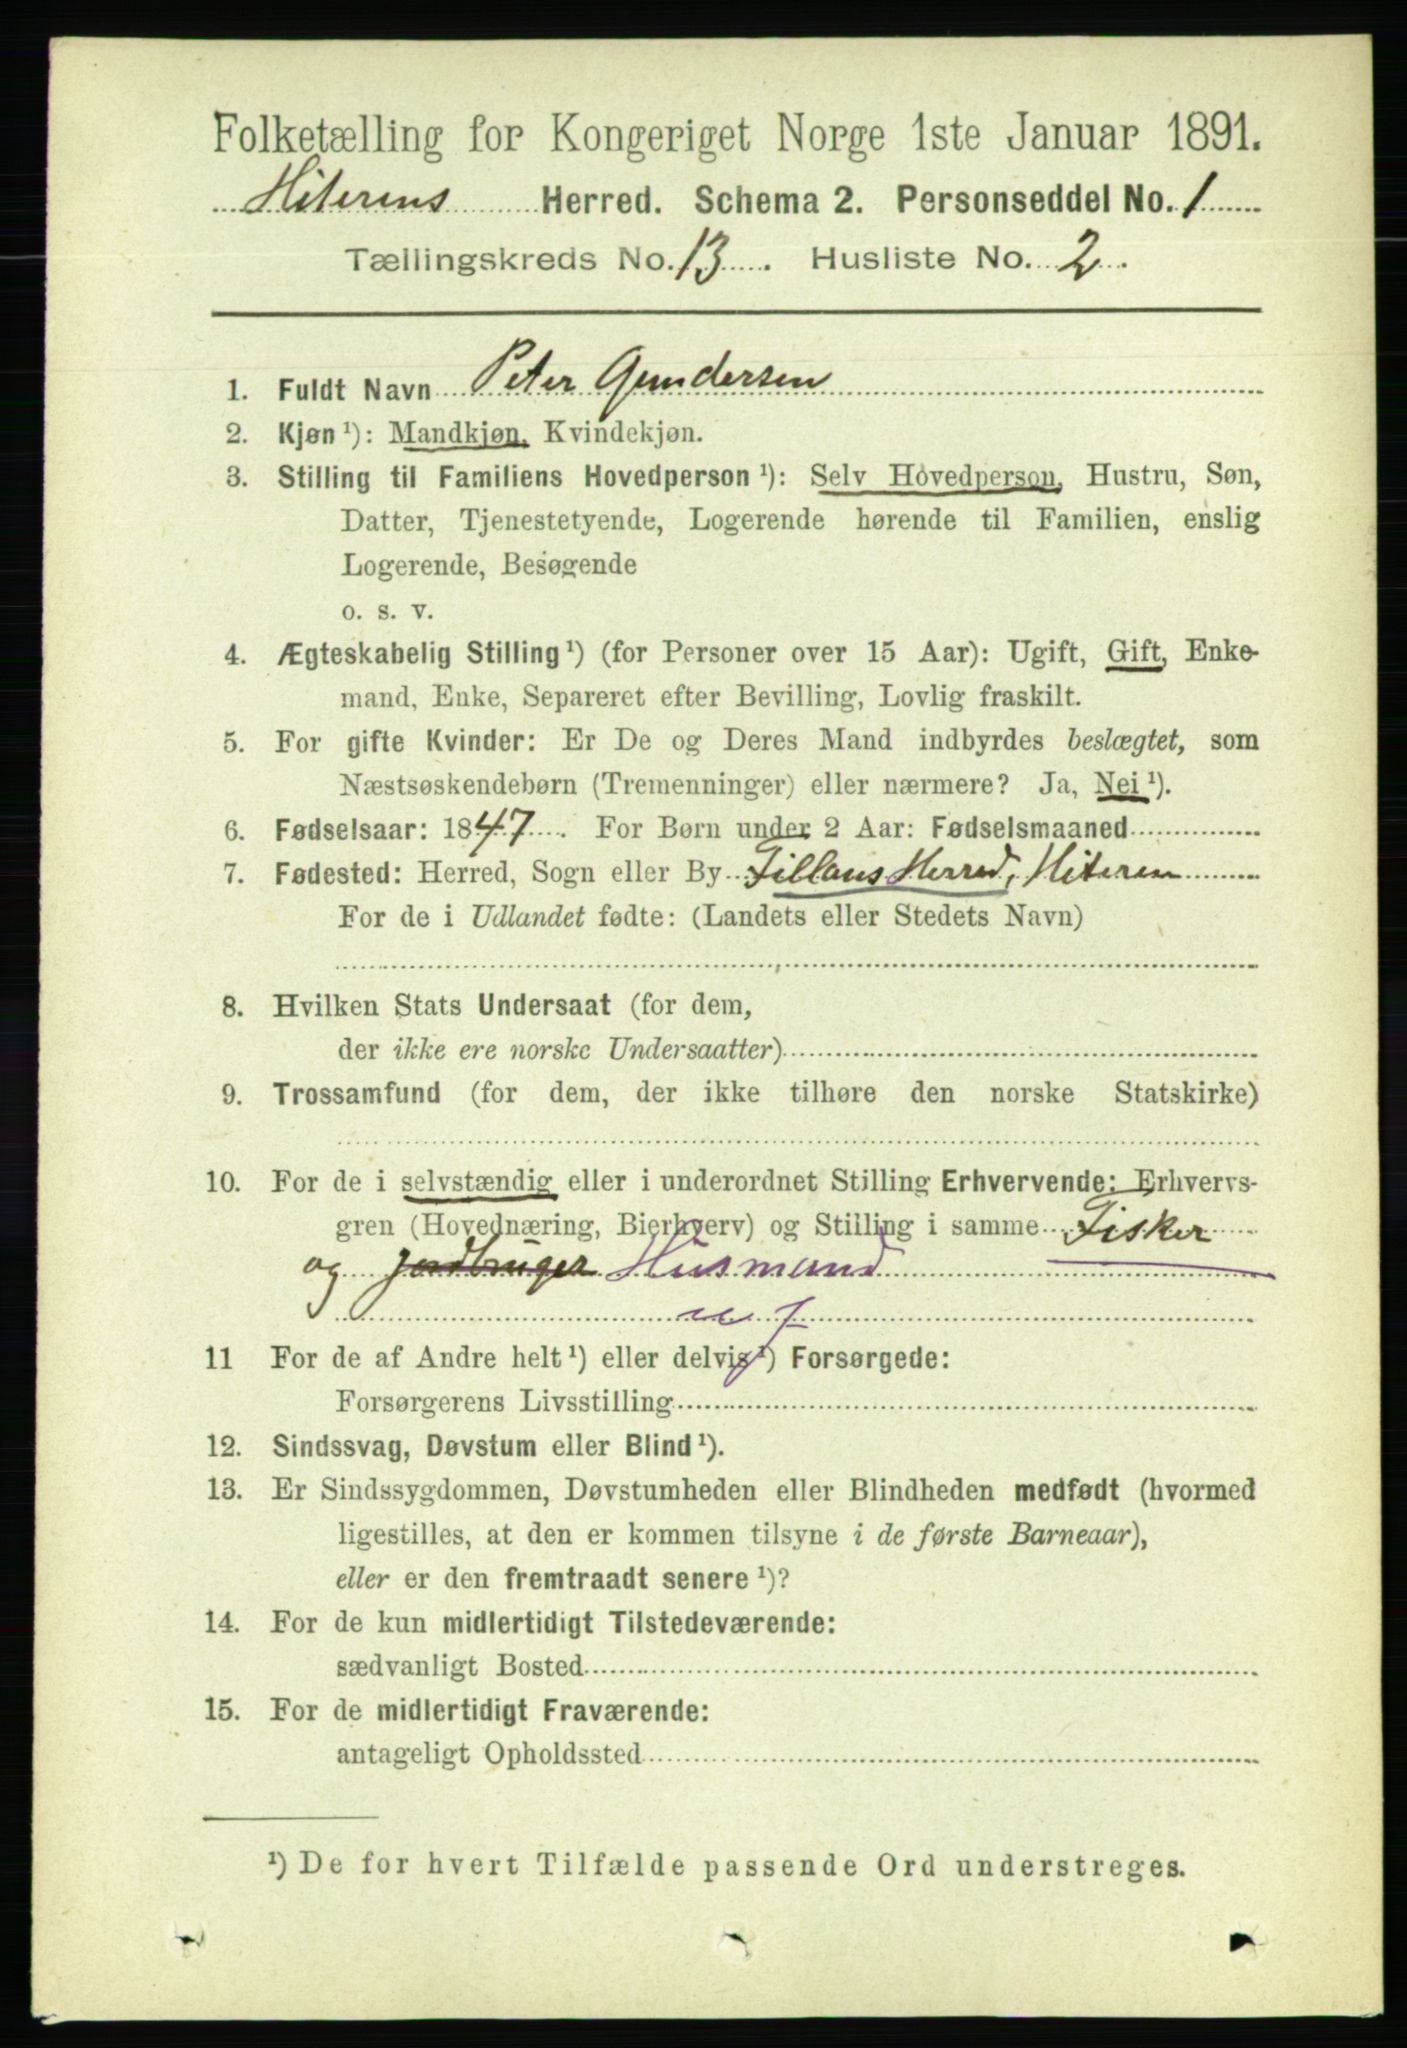 Folketælling for Kongeriget Norge 1ste Januar 1891.
Hiterens Herred. Schema 2. Personseddel No. 1
Tællingskreds No. 13. Husliste No. 2.
1. Fuldt Navn Peter Gundersen
2. Kjøn ¹): Mandkjøn, Kvindekjøn.
3. Stilling til Familiens Hovedperson ¹): Selv Hovedperson, Hustru, Søn,
Datter, Tjenestetyende, Logerende hørende til Familien, enslig
Logerende, Besøgende
o. s. v.
4. Ægteskabelig Stilling ¹) (for Personer over 15 Aar): Ugift, Gift, Enke-
mand, Enke, Separeret efter Bevilling, Lovlig fraskilt.
5. For gifte Kvinder: Er De og Deres Mand indbyrdes beslægtet, som
Næstsøskendebørn (Tremenninger) eller nærmere? Ja, Nei ¹).
6. Fødselsaar: 1847. For Børn under 2 Aar: Fødselsmaaned
7. Fødested: Herred, Sogn eller By Fillans Herred, Hiteren
For de i Udlandet fødte: (Landets eller Stedets Navn)
8. Hvilken Stats Undersaat (for dem,
der ikke ere norske Undersaatter)
9. Trossamfund (for dem, der ikke tilhøre den norske Statskirke)
10. For de i selvstændig eller i underordnet Stilling Erhvervende: Erhvervs-
gren (Hovednæring, Bierhverv) og Stilling i samme Fisker
og Jordbruger Husmand
m J
11 For de af Andre helt ¹) eller delvis ¹) Forsørgede:
Forsørgerens Livsstilling
12. Sindssvag, Døvstum eller Blind ¹).
13. Er Sindssygdommen, Døvstumheden eller Blindheden medfødt (hvormed
ligestilles, at den er kommen tilsyne i de første Barneaar),
eller er den fremtraadt senere ¹)?
14. For de kun midlertidigt Tilstedeværende:
sædvanligt Bosted
15. For de midlertidigt Fraværende:
antageligt Opholdssted
¹) De for hvert Tilfælde passende Ord understreges.